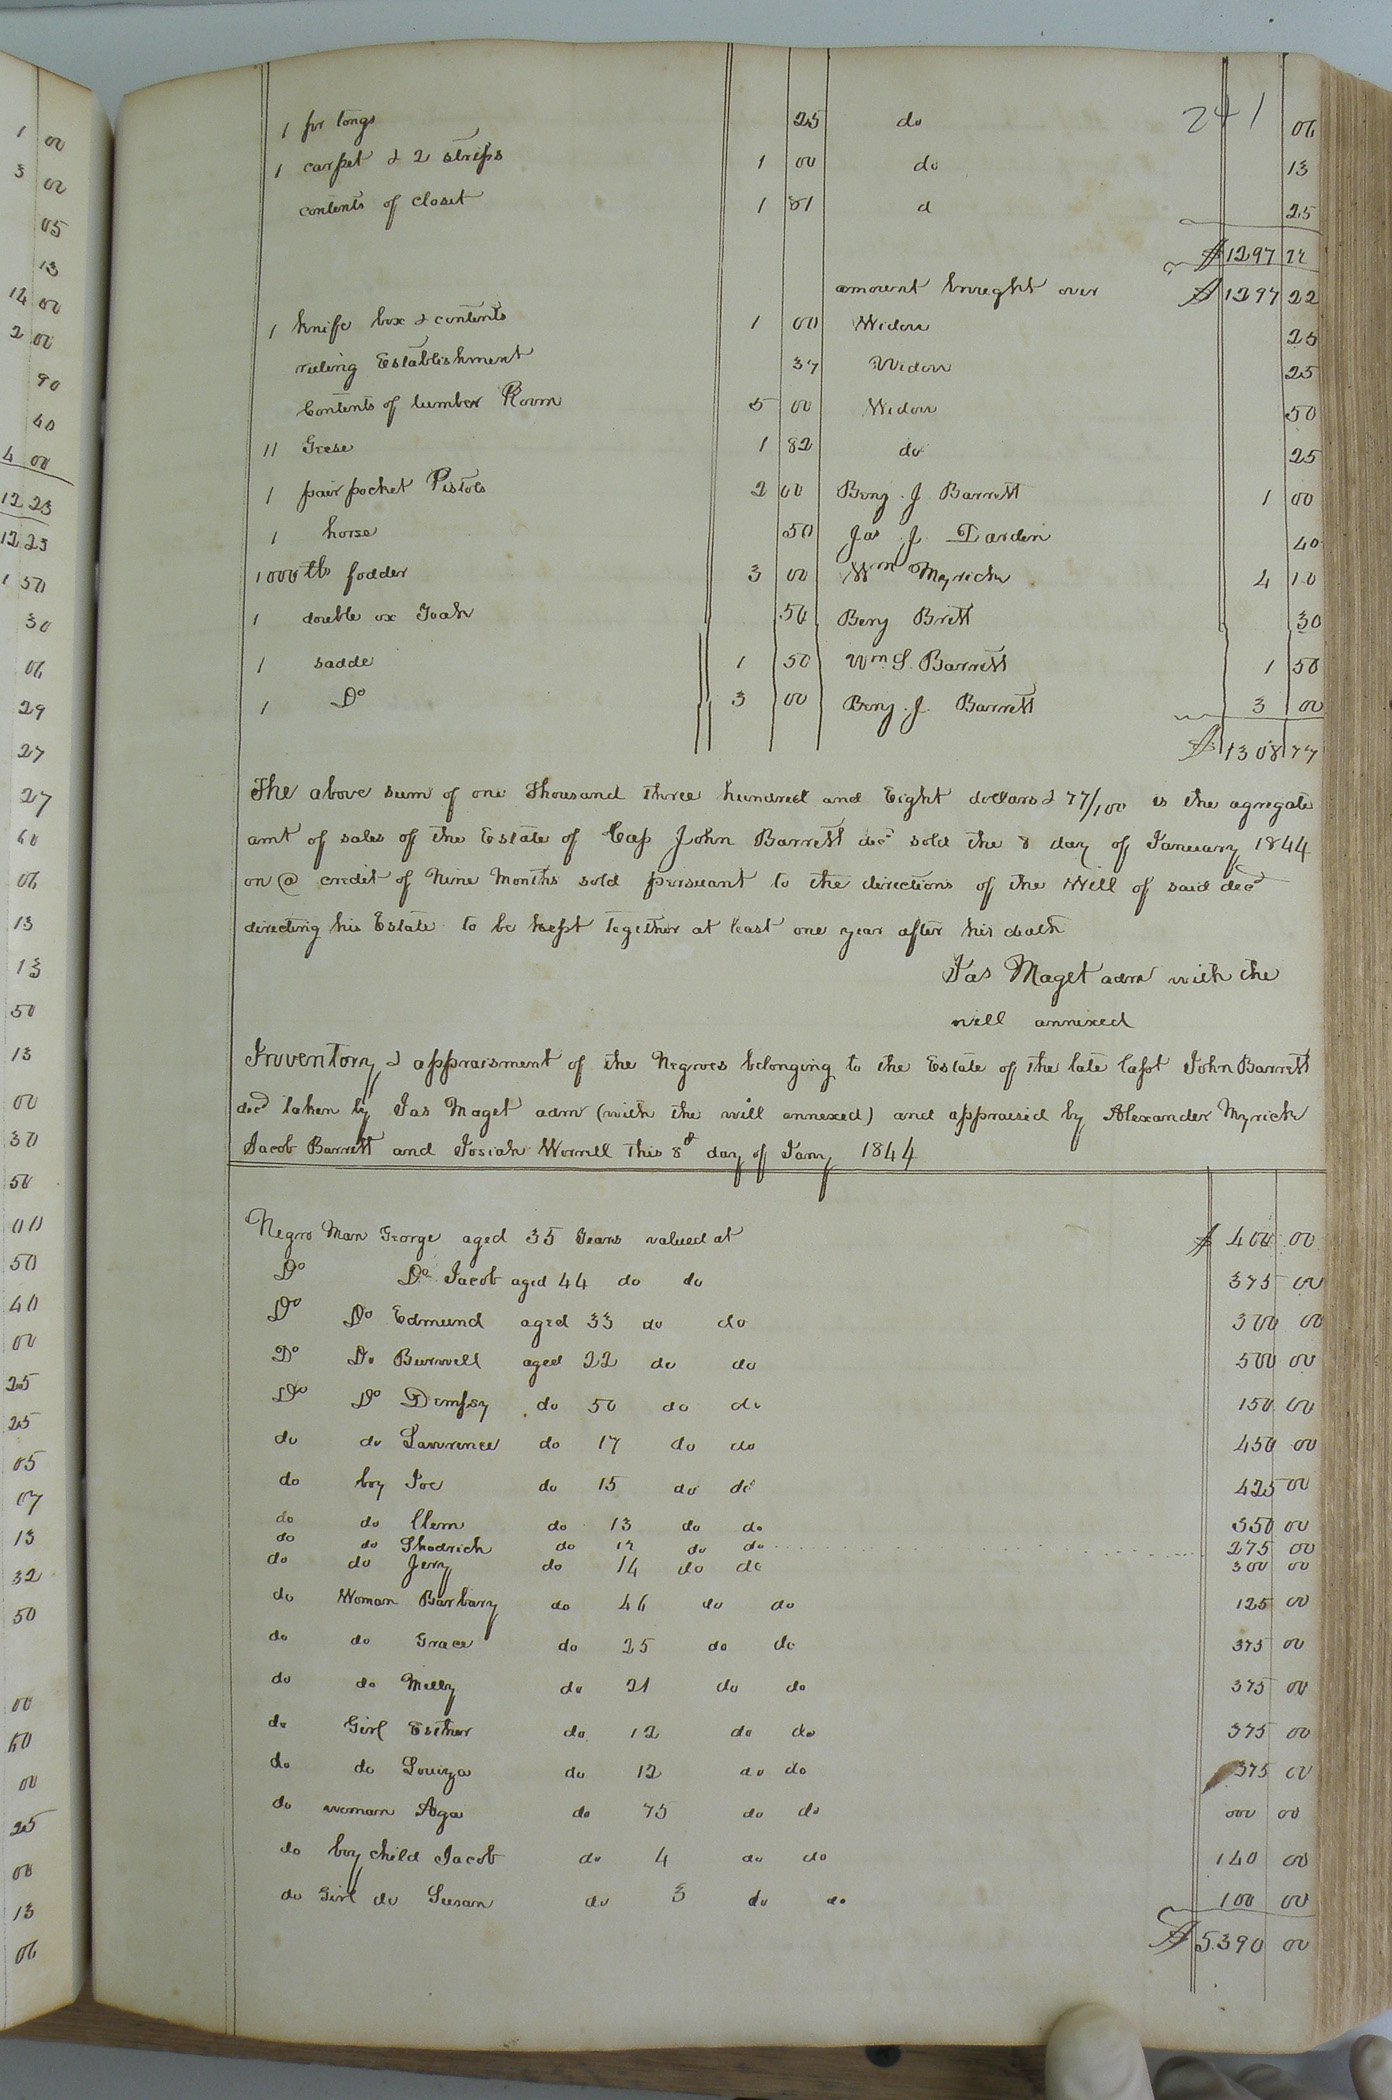 241
1 pr tongs 25 do 06
1 carpet & 2 strips 1 00 do 13
contents of closet 1 81 d 25
$ 1297 22
amount brought over $ 1297 22
1 knife box & contents 1 00 Widow 25
ruling Establishment 37 Widow 25
Contents of lumber Room 5 00 Widow 50
11 Geese 1 82 do 25
1 pair pocket Pistols 2 00 Benj. J. Barrett 1 00
1 horse 50 Jas J. Darden 40
1000 lbs fodder 3 00 Wm Myrick 4 10
1 double ox Yoak 50 Benj Britt 30
1 sadde 1 50 Wm S. Barrett 1 50
1 Do 3 00 Benj. J. Barrett 3 00
$ 1308 77
The above sum of one thousand three hundred and Eight dollars & 77/100 is the agregate
amt of sales of the Estate of Cap John Barrett decd sold the 8 day of January 1844
on @ credit of Nine Months sold pursuant to the directions of the Will of said decd
directing his Estate to be kept together at least one year after his death
Jas Maget adm with the
will annexed
Inventory & appraisment of the Negroes belonging to the Estate of the late Capt John Barrett
decd taken by Jas Maget adm (with the will annexed) and appraised by Alexander Myrick
Jacob Barrett and Josiah Worrell this 8th day of Jany 1844
Negro Man George aged 35 Years valued at $ 400 00
Do Do Jacob aged 44 do do 375 00
Do Do Edmund aged 33 do do 300 00
Do Do Burwell aged 22 do do 500 00
Do Do Dempsy do 50 do do 150 00
do do Lawrence do 17 do do 450 00
do boy Joe do 15 do do 425 00
do do Clem do 13 do do 350 00
do do Shadrich do 12 do do 275 00
do do Jerry do 14 do do 300 00
do Woman Barbary do 46 do do 125 00
do do Grace do 25 do do 375 00
do do Milly do 21 do do 375 00
do Girl Esther do 12 do do 375 00
do do Louiza do 12 do do 375 00
do woman Aga do 75 do do 000 00
do boy child Jacob do 4 do do 140 00
do Girl do Susan do 3 do do 100 00
$ 5390 00
1 00
3 00
05
13
14 00
2 00
90
40
4 00
12 23
12 23
1 50
30
06
29
27
27
60
06
13
13
50
13
00
30
50
00
50
40
00
25
25
05
07
13
32
50
00
60
00
25
00
13
06